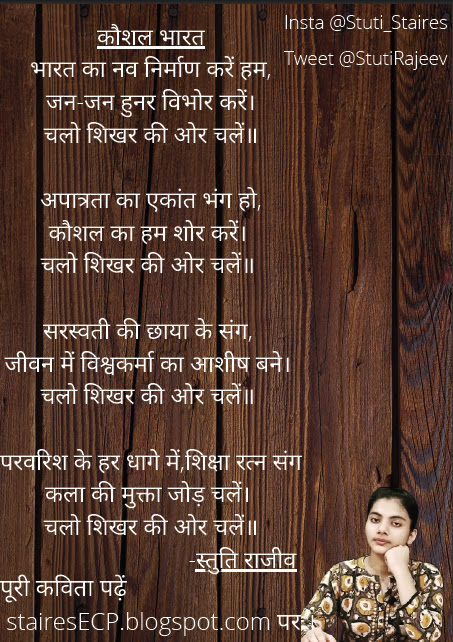 Insta @Stuti_Staires
Tweet @StutiRajeev
कौशल भारत
भारत का नव निर्माण करें हम,
जन-जन हुनर विभोर करें।
चलो शिखर की ओर चलें॥
अपात्रता का एकांत भंग हो,
कौशल का हम शोर करें।
चलो शिखर की ओर चलें॥
सरस्वती की छाया के संग,
जीवन में विश्वकर्मा का आशीष बने।
चलो शिखर की ओर चलें॥
परवरिश के हर धागे में,शिक्षा रत्न संग
कला की मुक्ता जोड़ चलें।
चलो शिखर की ओर चलें॥
-स्तुति राजीव
पूरी कविता पढ़ें
stairesECP.blogspot.com पर।